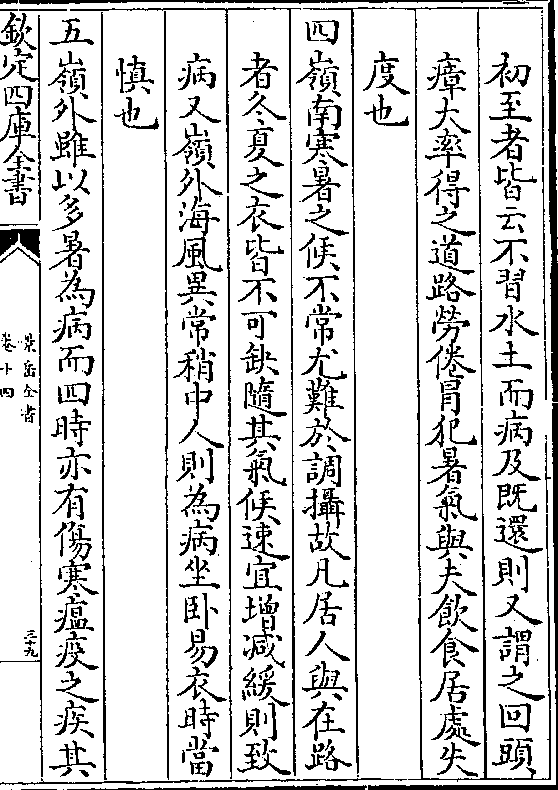 初至者皆云不習水土而病及既還則又謂之回頭
瘴大率得之道路勞倦冒犯暑氣與夫飲食居處失
度也
四嶺南寒暑之候不常尤難於調攝故凡居人與在路
者冬夏之衣皆不可缺隨其氣候速宜增減緩則致
病又嶺外海風異常稍中人則為病坐卧易衣時當
慎也
五嶺外雖以多暑為病而四時亦有傷寒瘟疫之疾其
欽定四庫全書
景岳全書
卷十四
三十九